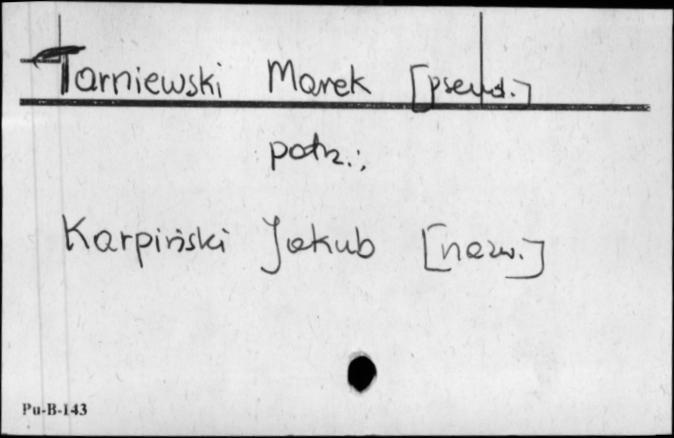 Tarniewski Marek [pseud.]
patrz.:
Karpiński Jakub [nazw.]
Pu-B-143